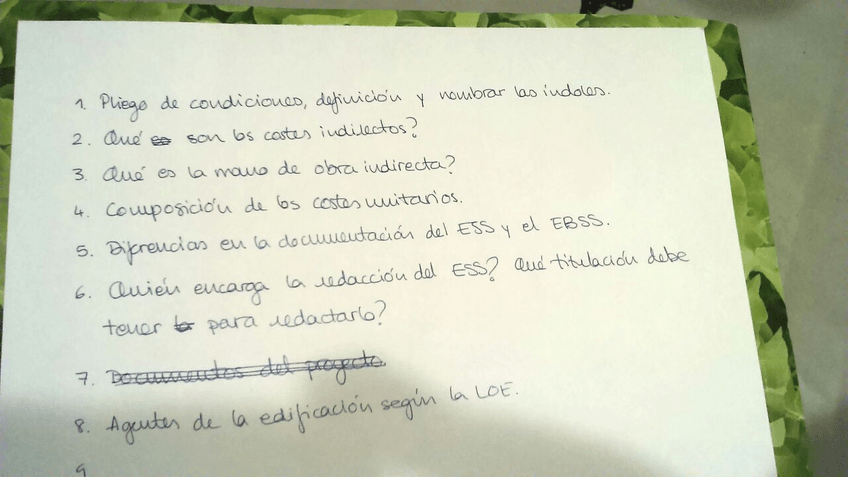 1. Pliego de condiciones, definición y nombrar las índoles.
2. Qué es son los costes indirectos?
3. Qué es la mano de obra indirecta?
4. Composición de los costes unitarios.
5. Diferencias en la documentación del ESS y el EBSS.
6. Quién encarga la redacción del ESS? Qué titulación debe
tener para redactarlo?
7. Documentos del proyecto
8. Agentes de la edificación según la LOE.
9